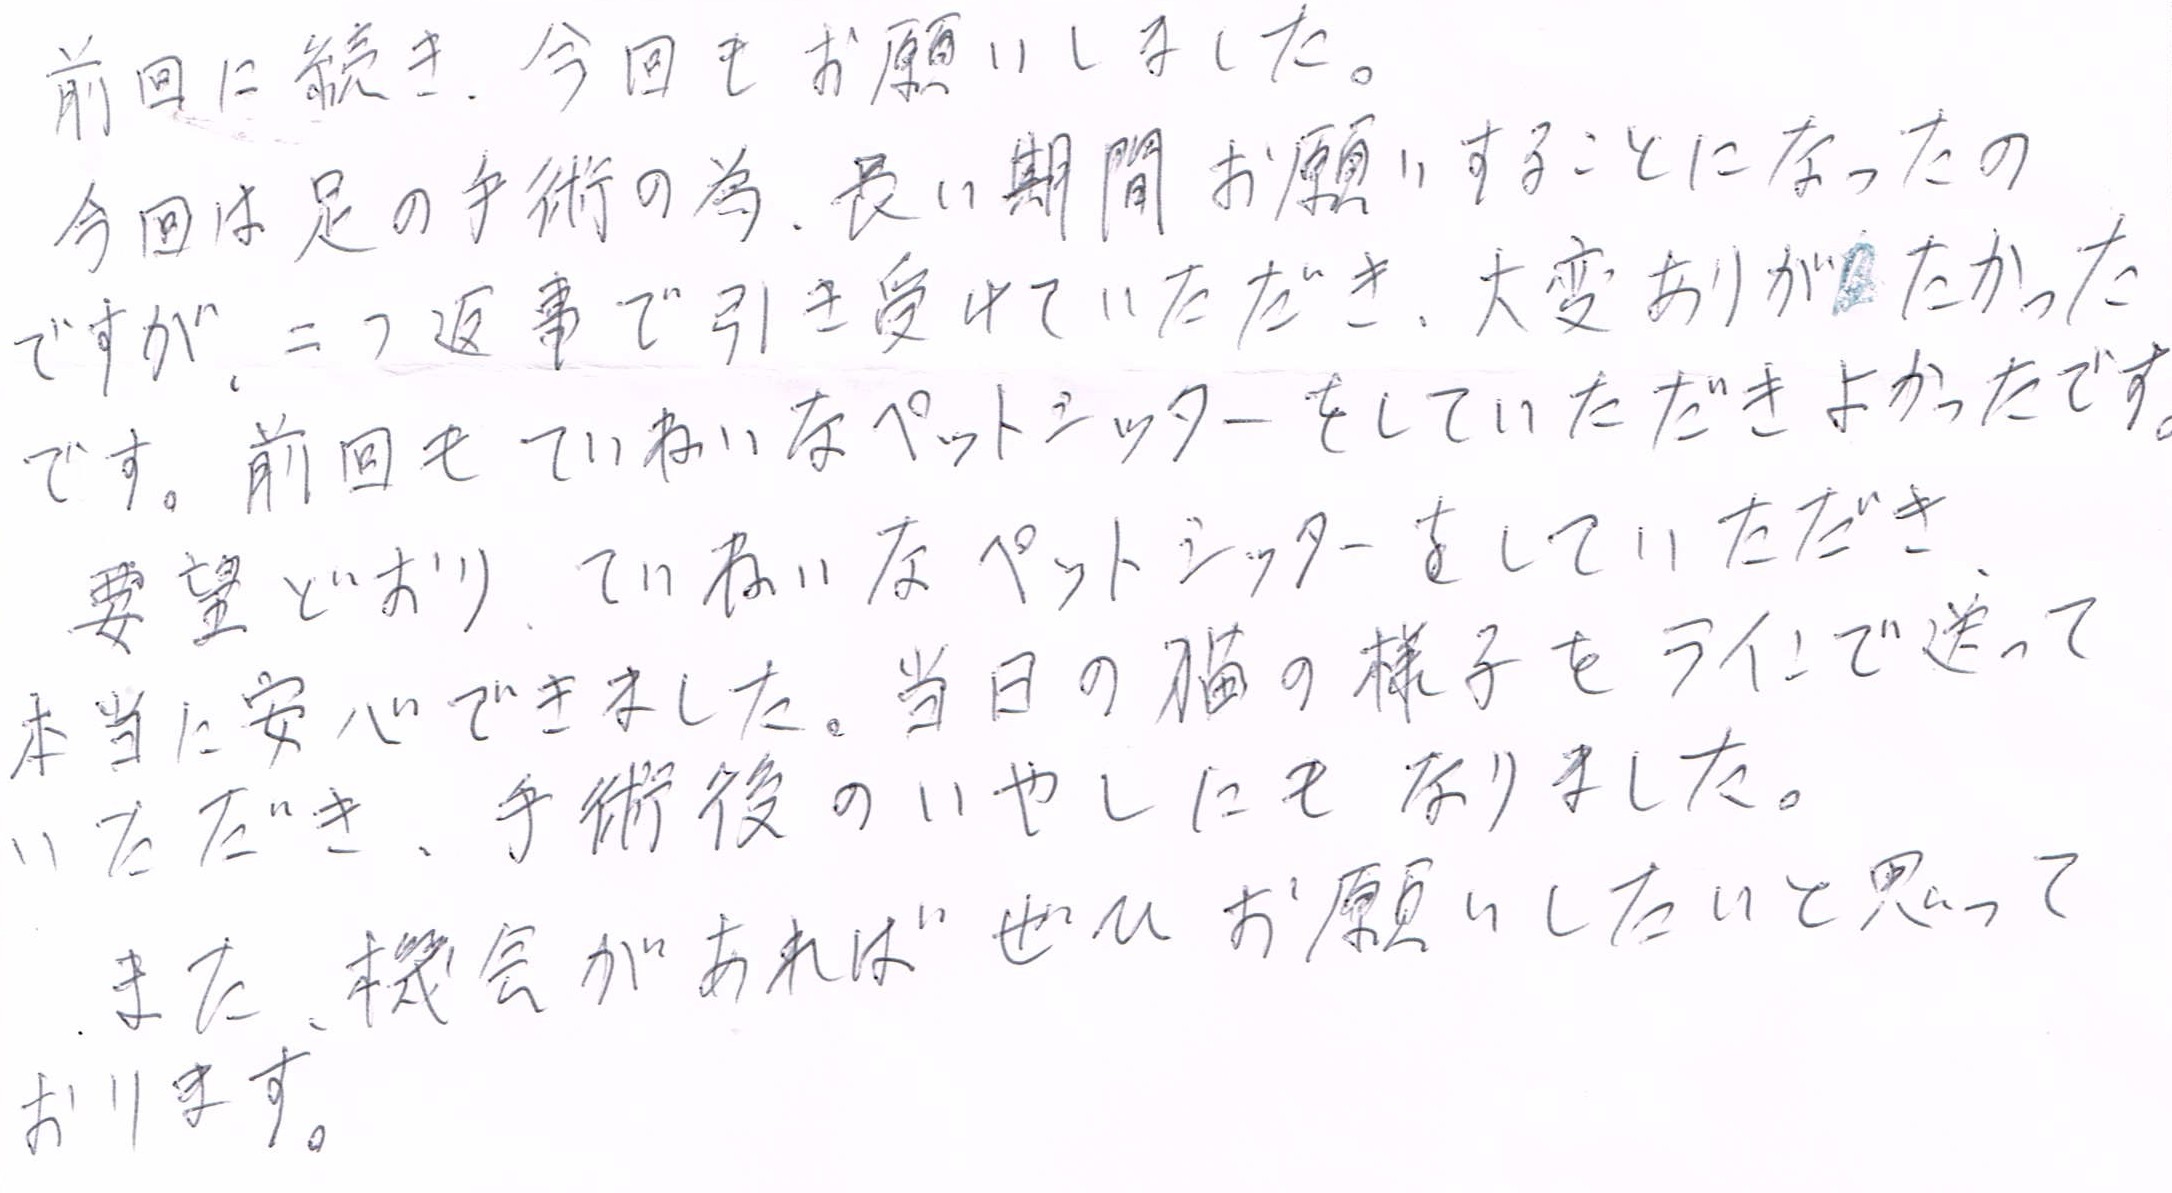 前回に続き、今回もお願いしました。
今回は足の手術の為、長い期間お願いすることになったの
ですが、二つ返事で引き受けていただき、大変ありがたかった
です。前回もていねいなペットシッターをしていただきよかったです。
要望どおり、ていねいなペットシッターをしていただき、
本当に安心できました。当日の猫の様子をラインで送って
いただき、手術後のいやしにもなりました。
また、機会があればぜひお願いしたいと思って
おります。